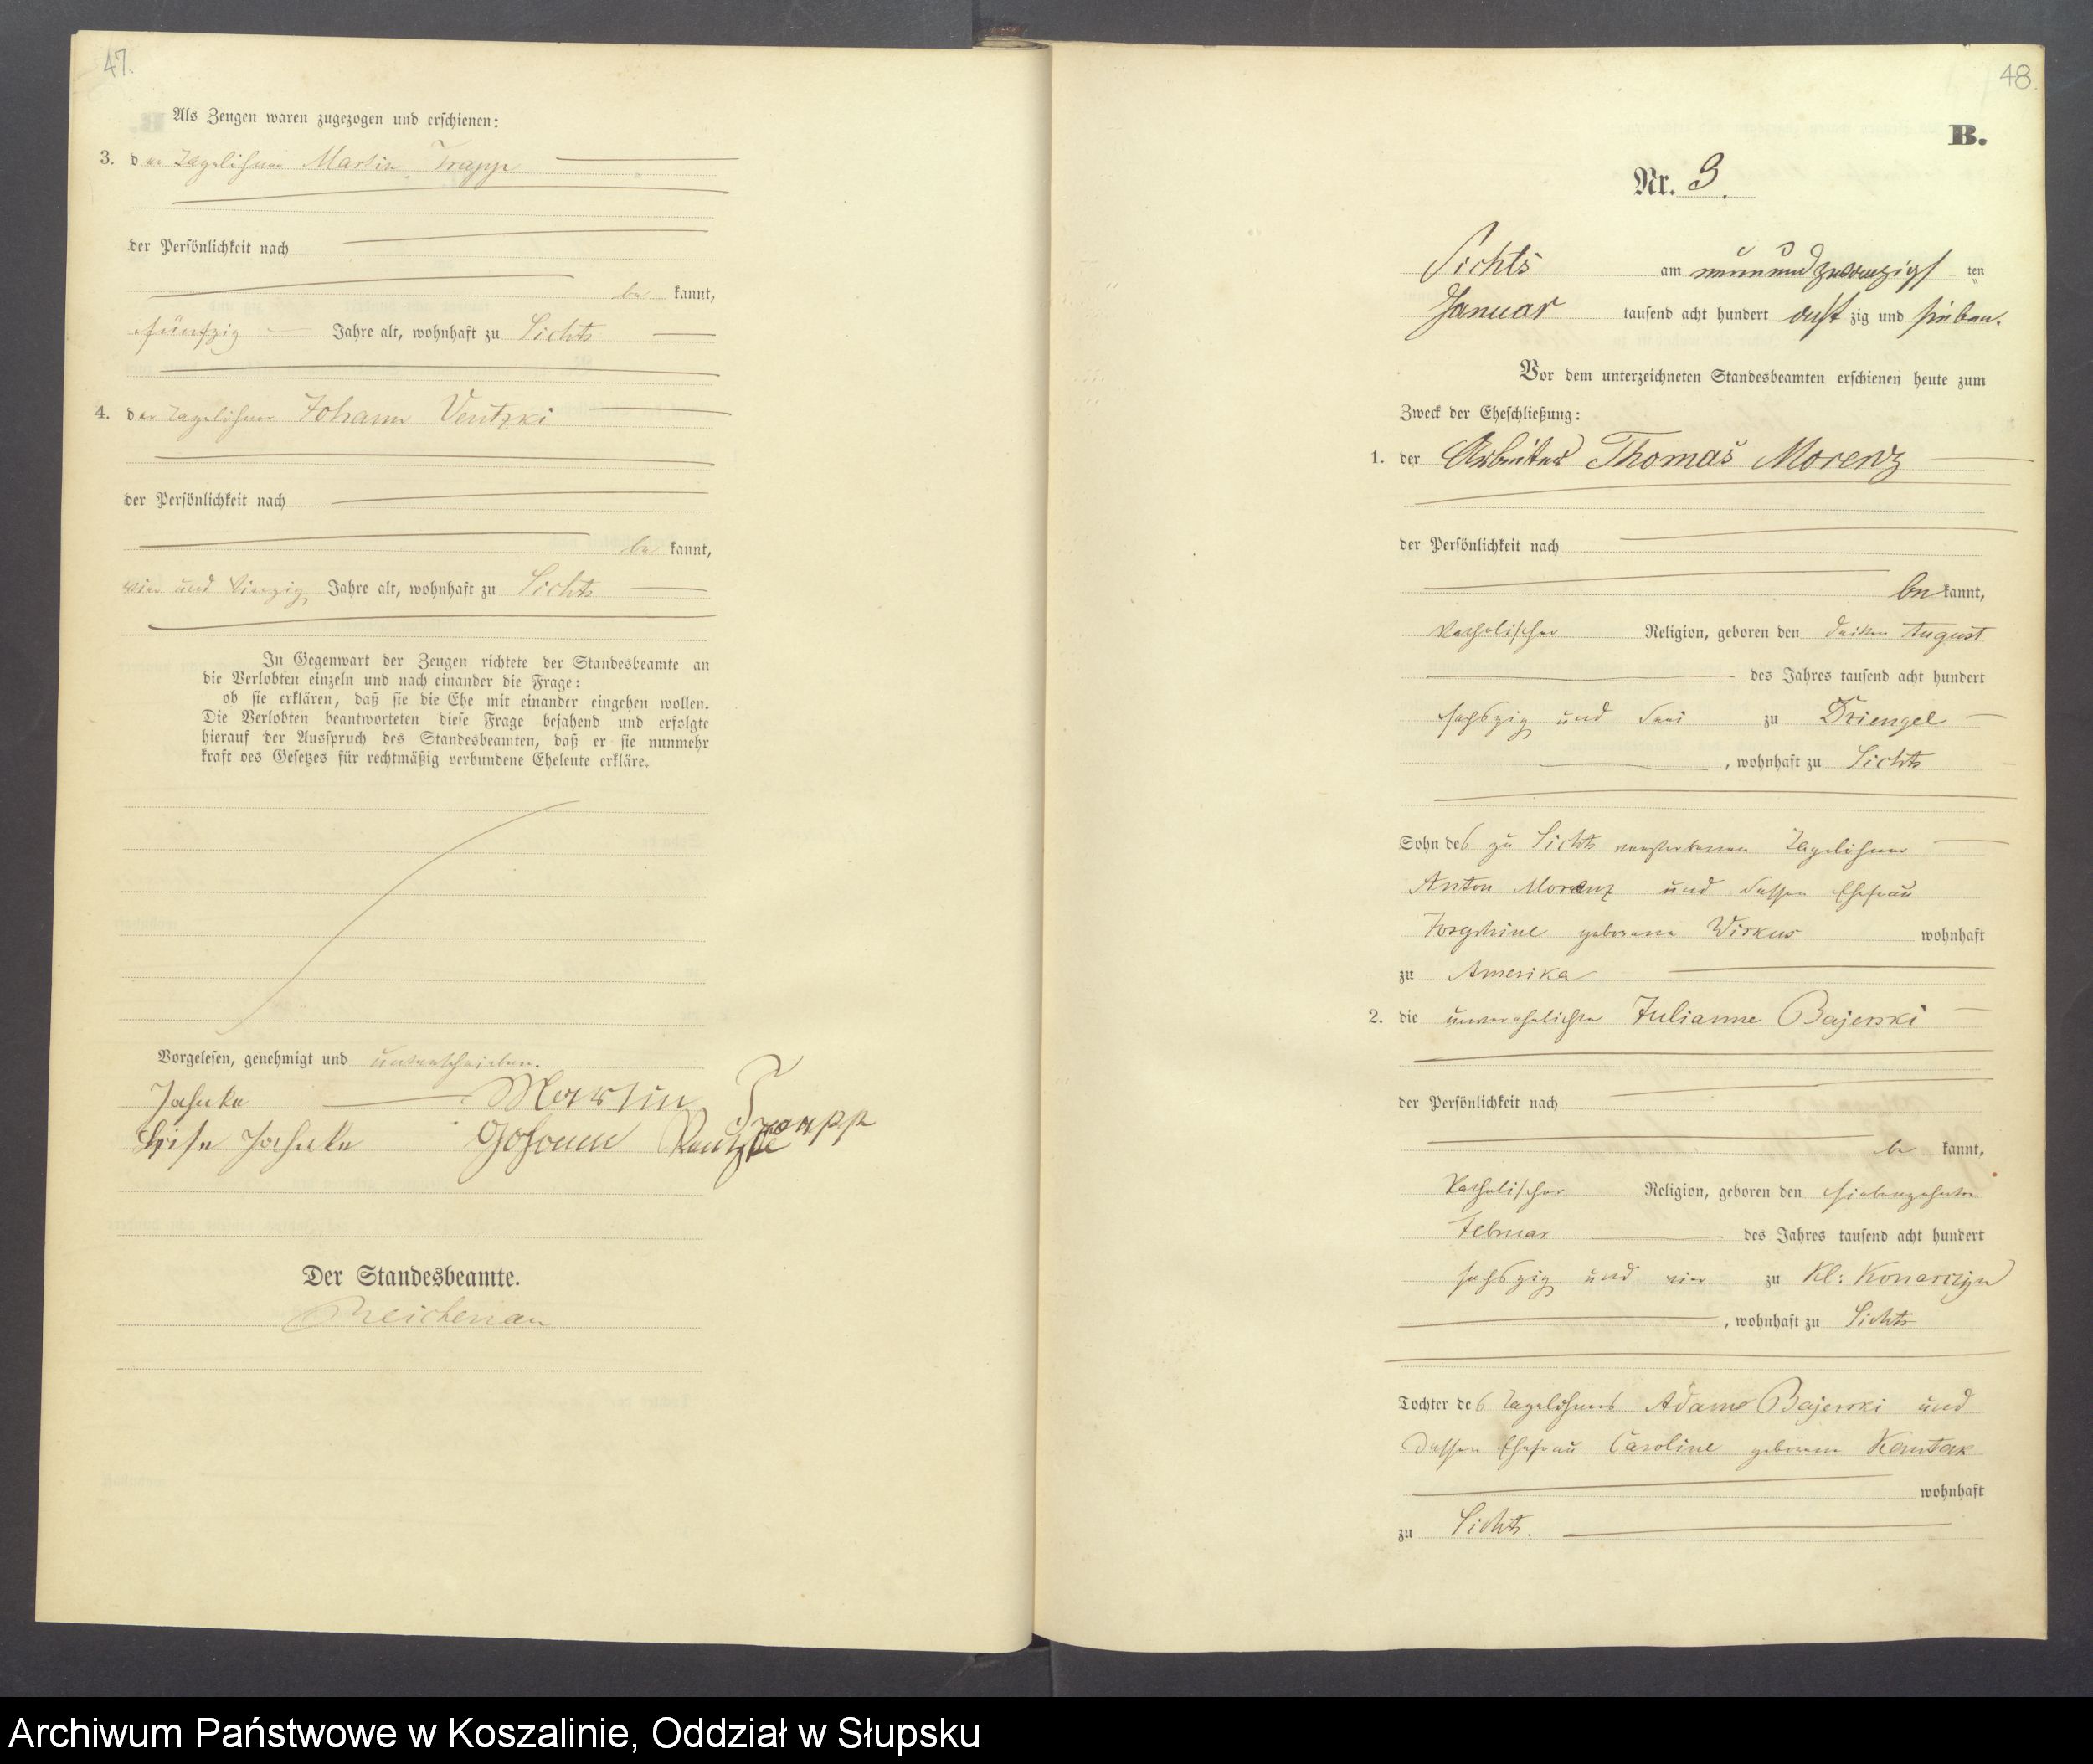 47.
Als Zeugen waren zugezogen und erschienen:
3. der Tagelöhner Martin Trapp
der Persönlichkeit nach
be kannt,
fünfzig Jahre alt, wohnhaft zu Sichts
4. der Tagelöhner Johann Ventzki
der Persönlichkeit nach
be kannt,
vier und vierzig Jahre alt, wohnhaft zu Sichts
In Gegenwart der Zeugen richtete der Standesbeamte an
die Verlobten einzeln und nach einander die Frage:
ob sie erklären, daß sie die Ehe mit einander eingehen wollen.
Die Verlobten beantworteten diese Frage bejahend und erfolgte
hierauf der Ausspruch des Standesbeamten, daß er sie nunmehr
kraft des Gesetzes für rechtmäßig verbundene Eheleute erkläre.
Vorgelesen, genehmigt und unterschrieben.
Jahnke Martin Trapp
Jahnke Johann
Der Standesbeamte.
Reichenau
48.
B.
Nr. 3.
Sichts am neunundzwanzigs ten
Januar tausend acht hundert acht zig und sieben.
Vor dem unterzeichneten Standesbeamten erschienen heute zum
Zweck der Eheschließung:
1. der Arbeiter Thomas Morenz
der Persönlichkeit nach
be kannt,
katholischer Religion, geboren den dritten August
des Jahres tausend acht hundert
sechszig und drei zu Driengel
, wohnhaft zu Sichts
Sohn des zu Sichts verstorbenen Tagelöhner
Anton Morenz und dessen Ehefrau
Josephine geborene Wirkus wohnhaft
zu Amerika
2. die unverehelichte Julianne Bajerski
der Persönlichkeit nach
be kannt,
katholischer Religion, geboren den siebenzehnten
Februar des Jahres tausend acht hundert
sechszig und vier zu Kl: Konarczyn
, wohnhaft zu Sichts
Tochter des Tagelöhners Adam Bajerski und
dessen Ehefrau Caroline geborene Kantak
wohnhaft
zu Sichts.
Archiwum Państwowe w Koszalinie, Oddział w Słupsku